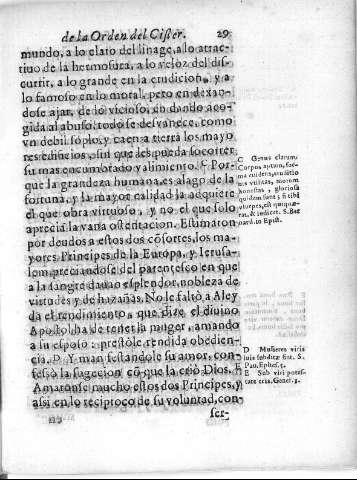 de la Orden del Cister. 29
mundo, a lo claro del linage, a lo atrac-
tiuo de la hermosura, a lo veloz del dis-
currir, a lo grande en la erudicion, y a
lo famoso en lo moral, pero en dexan-
dose ajar, de lo vicioso, en dando aco-
gida al abuso, todo se desvanece, como
vn debil soplo, y caen a tierra los mayo
res edificios, sin que les pueda socorrer
su mas encumbrado valimiento. C Por-
que la grandeza humana, es alago de la
fortuna, y la mayor calidad la adquiere
el que obra virtuoso, y no el que solo
aprecia la vana ostentacion. Estimaron
por deudos a estos dos cõsortes, los ma-
yores Principes de la Europa, y Ierusa-
lem, preciandose del parentesco en que
a la sangre dauan esplendor, nobleza de
virtudes y de hazañas. No le faltò a Aley
da el rendimiento, que dize el diuino
Apostol ha de tener la muger, amando
a su esposo: prestòle rendida obedien-
cia. D Y manifestandole su amor, con-
fessò la sugecion cõ que la criò Dios. E
Amaronse mucho estos dos Principes, y
assi en lo reciproco de su voluntad, con
ser-
C Genus clarum
Corpus aptum, for-
ma
quidem sunt, si tibi
S. Ber
nard. in Epist.
D Mulieres viris
suis subditæ sint. S.
Pau. Ephes. 5.
E Sub viri potes-
tate eris. Genes. 3.